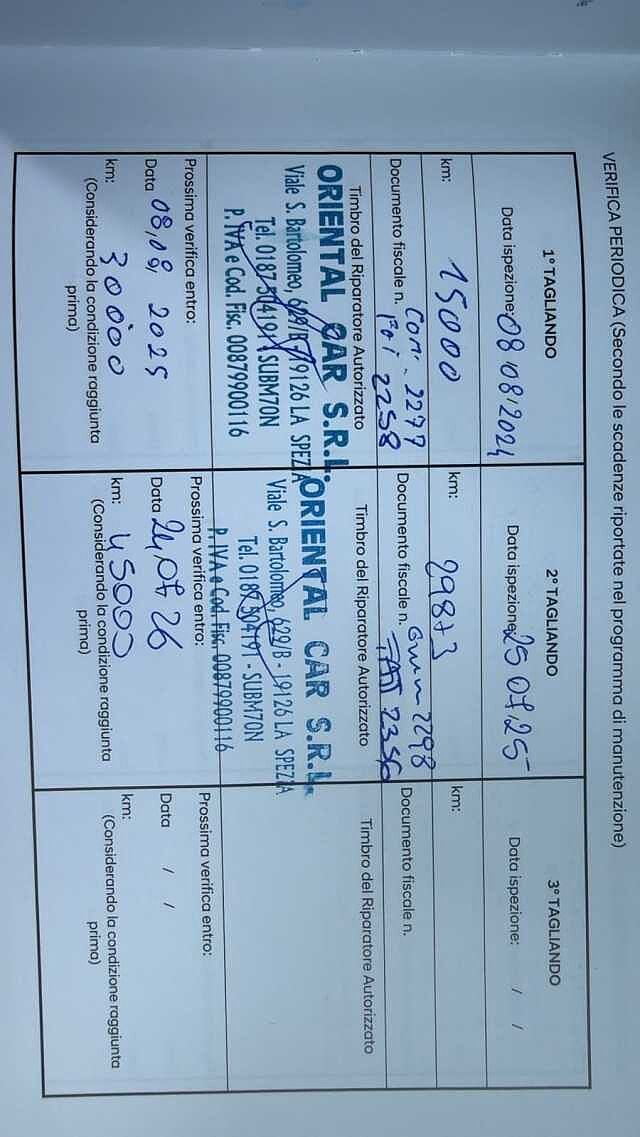 VERIFICA PERIODICA (Secondo le scadenze riportate nel programma di manutenzione)
1° TAGLIANDO
Data ispezione: 08/08/2024
km: 15000
Documento fiscale n. 2277
2258
Timbro del Riparatore Autorizzato
ORIENTAL CAR S.R.L.
Viale S. Bartolomeo, 629/B - 19126 LA SPEZIA
Tel. 0187 504191 - SUBM70N
P. IVA e Cod. Fisc. 00879900116
Prossima verifica entro:
Data 08,08, 2025
km: 30000
(Considerando la condizione raggiunta
prima)
2° TAGLIANDO
Data ispezione: 25 07,25
km: 29873
Documento fiscale n. 2298
Timbro del Riparatore Autorizzato
ORIENTAL CAR S.R.L.
Viale S. Bartolomeo, 629/B - 19126 LA SPEZIA
Tel. 0187 504191 - SUBM70N
P. IVA e Cod. Fisc. 00879900116
Prossima verifica entro:
Data 24,07 26
km: 45000
(Considerando la condizione raggiunta
prima)
3° TAGLIANDO
Data ispezione: / /
km:
Documento fiscale n.
Timbro del Riparatore Autorizzato
Prossima verifica entro:
Data / /
km:
(Considerando la condizione raggiunta
prima)